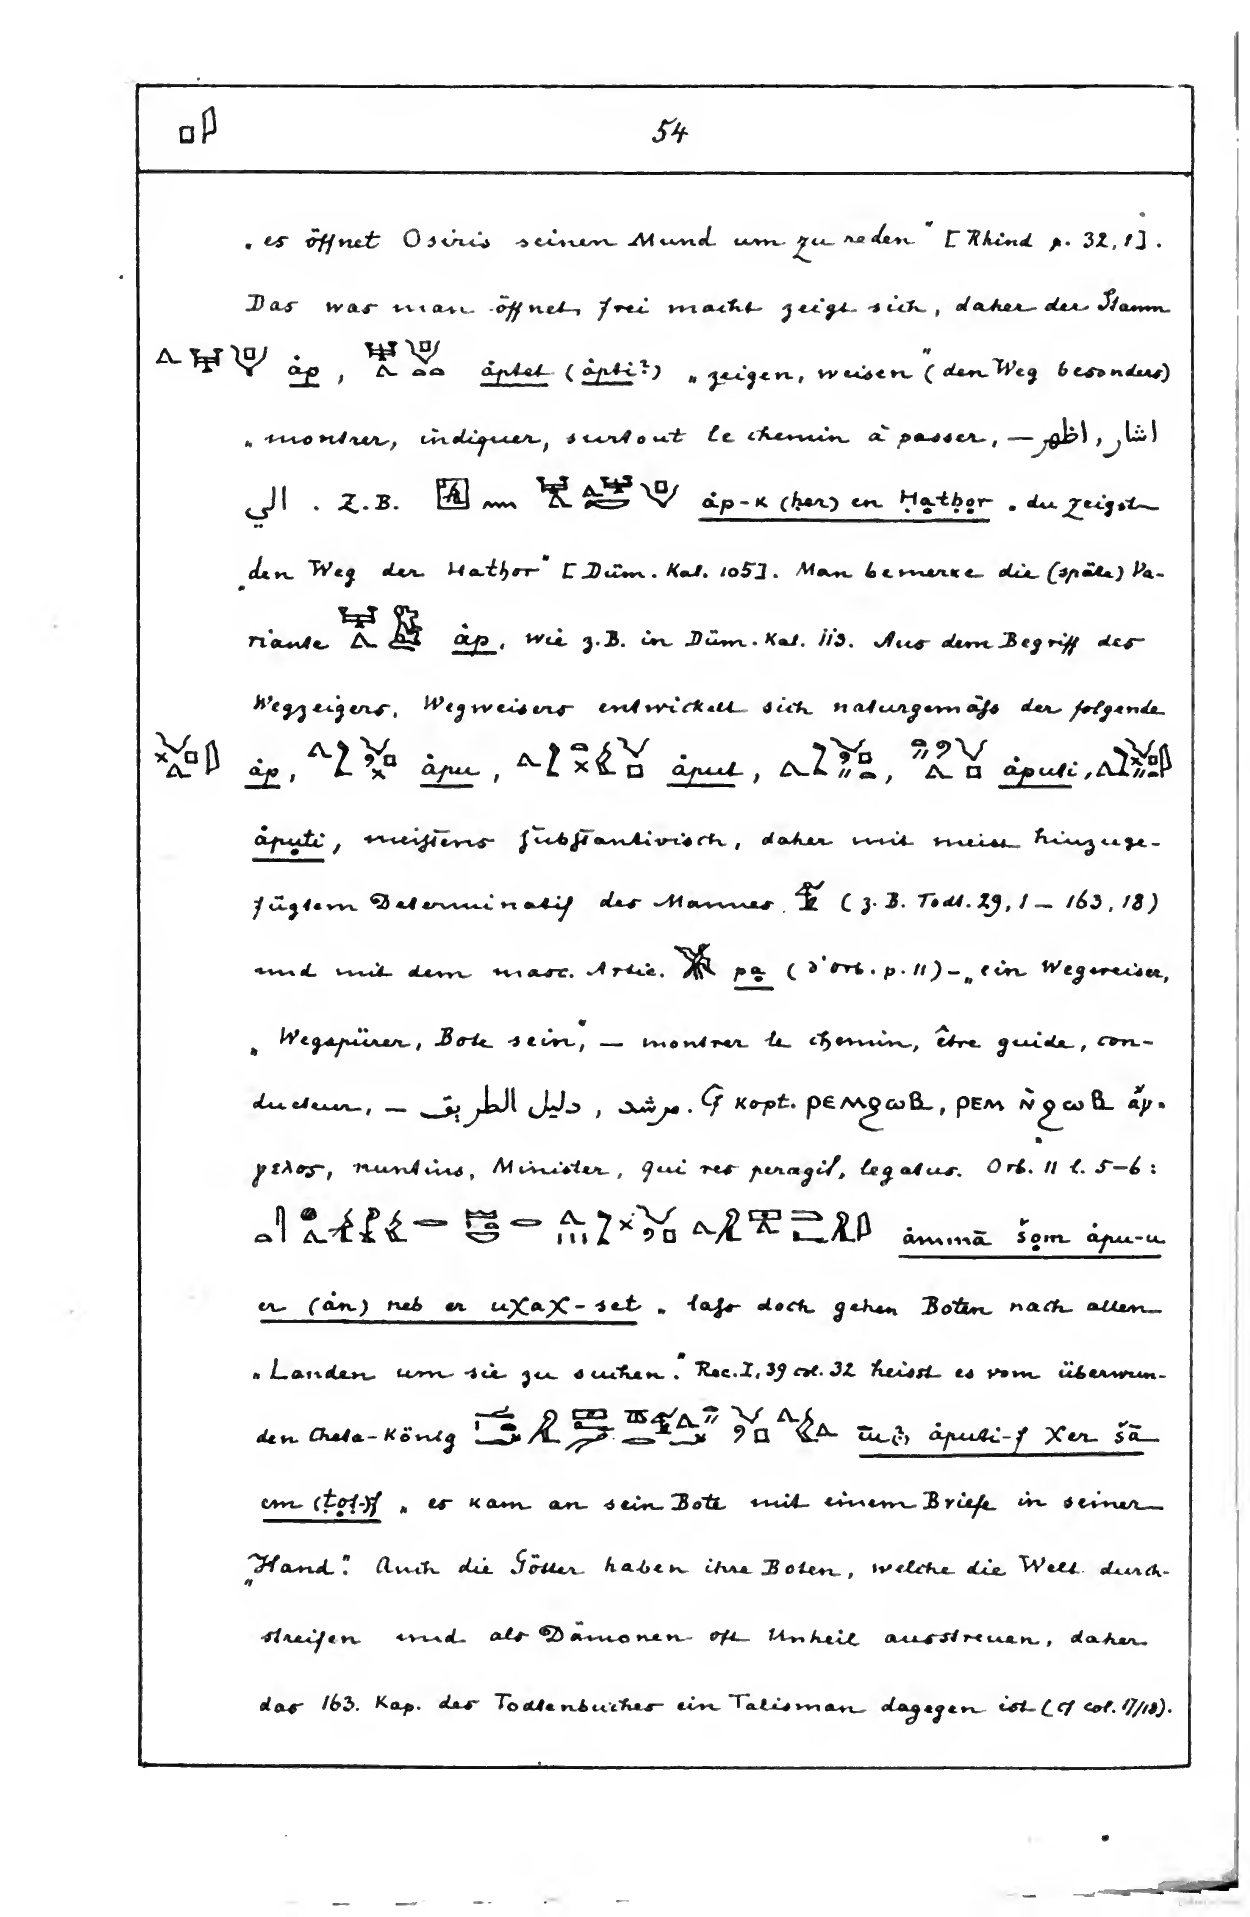 54
„es öffnet Osiris seinen Mund um zu reden“ [Rhind p. 32,1].
Das was man öffnet, frei macht zeigt sich, daher der Stamm
ȧp, ȧptet (ȧpti?) „zeigen, weisen“ (den Weg besonders)
„montrer, indiquer, surtout le chemin à passer, — اشار, اظهر
الي. Z.B. ȧp-k (ḥer) en Ḥatḥor „du zeigst
„den Weg der Hathor“ [Düm. Kal. 105]. Man bemerke die (späte) Va-
riante ȧp, wie z.B. in Düm. Kal. 113. Aus dem Begriff des
Wegzeigers, Wegweisers entwickelt sich naturgemäſs der folgende
ȧp, ȧpu, ȧput, ȧputi,
ȧpuṭi, meistens substantivisch, daher mit meist hinzuge-
fügtem Determinatif des Mannes (z.B. Todt. 29,1 – 163,18)
und mit dem masc. Artic. pạ (d'Orb. p. 11) – „ein Wegweiser,
„Wegspürer, Bote sein“, — montrer le chemin, être guide, con-
ducteur, — مرشد, دليل الطريق. Cf kopt. ⲣⲉⲙϩⲱⲃ, ⲣⲉⲙ ⲛ̀ϩⲱⲃ ἄγ-
γελος, nuntius, Minister, qui res peragit, legatus. Orb. 11 l. 5–6:
ȧmmā šọm ȧpu-u
er (ȧn) neb er uχaχ-set „laſs doch gehen Boten nach allen
„Landen um sie zu suchen.“ Rec. I, 39 col. 32 heisst es vom überwun-
den Cheta-König ȧputi-f χer šā
em (ṭọṭ-)f „es kam an sein Bote mit einem Briefe in seiner
„Hand“. Auch die Götter haben ihre Boten, welche die Welt durch-
streifen und als Dämonen oft Unheil ausstreuen, daher
das 163. Kap. des Todtenbuches ein Talisman dagegen ist (cf col. 17/18).